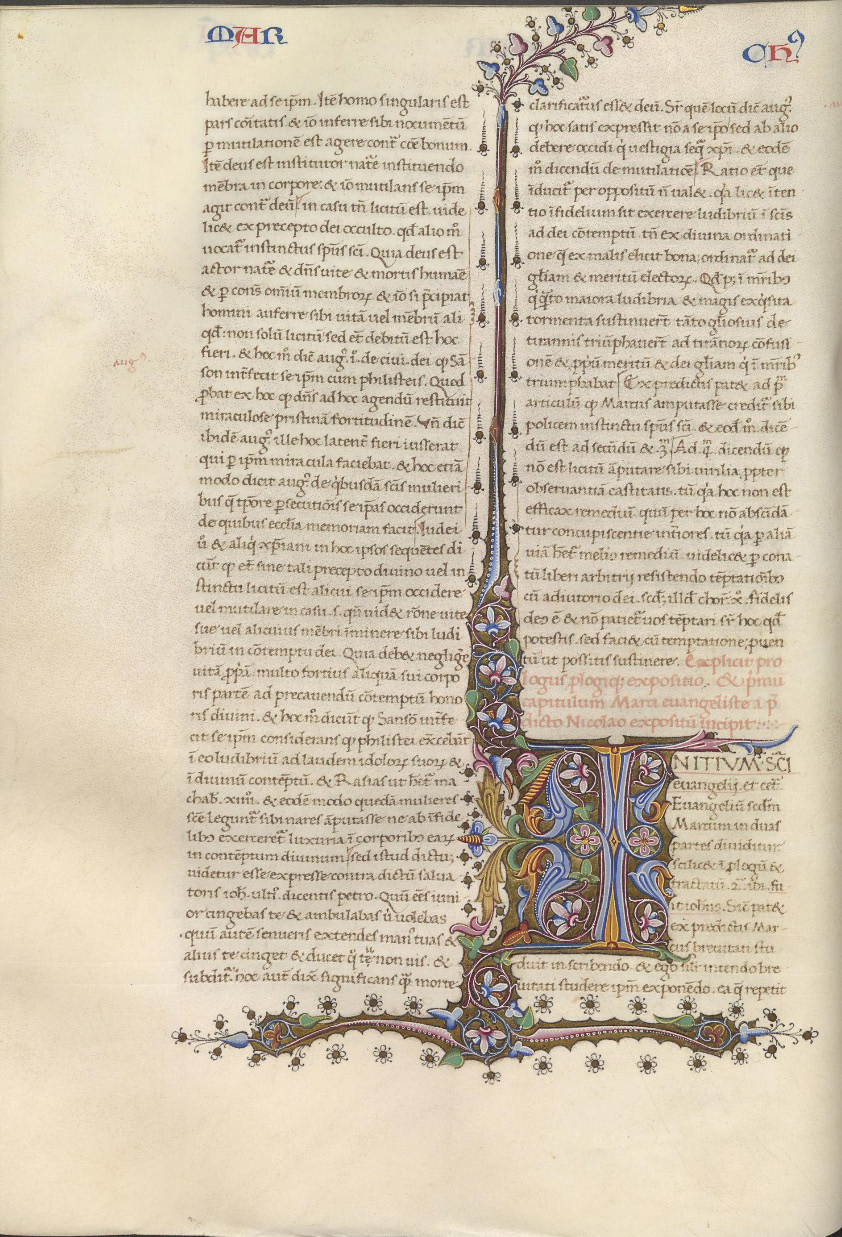 MAR
CHꝰ
habere ad se ip̄m. Itē homo singularis est
pars cōitatis. & iō inferre sibi nocumētū
ꝑ mutilationē est agere cont̄ cōe bonum.
Itē deus est institutor nat̄e instituendo
mēbra in corpore. & iō mutilans se ip̄m
agit cont̄ deū in casu tn̄ licitū est. vide
lic& ex precepto dei occulto. qd̄ alio mō
vocat̄ instinctus sp̄us sc̄i. Quia deus est
actor nat̄e & dn̄s vite & mortis humāe
& ꝑ cons̄ oīm membroꝝ. & iō si p̄cipiat
homini auferre sibi vitā vel mēbrū ali
qd̄. non solū licitū sed et̄ debitū est hoc
fieri. & hoc m̄ dic̄ aug̓. i. de civi. dei ꝙ Sā
son int̄fecit se ip̄m cum philisteis. Quod
ꝓbat ex hoc ꝙ dn̄s ad hoc agendū restituit
miraculose pristinā fortitudinē. Vn̄ dic̄
ibidē aug̓. ille hoc latent̄ fieri iusserat
qui ꝑ ip̄m miracula faciebat. & hoc etiā
modo dicit aug̓. de qͥbusdā sc̄is mulieri
bus q̄ tp̄ore ꝑsecutiōis se ip̄as occiderunt
de quibus ecclīa memoriam facit. Iudei
v̓o & aliqͥ xp̄iani in hoc ipsos sequētes di
cūt ꝙ et̄ sine tali precepto divino vel in
stinctu licitū est alicui se ip̄m occidere
vel mutilare in casu. s. qn̄ vid& rōne vite
sue vel alicuius mēbri īminere sibi ludi
briū in contemptū dei. Quia deb& neglige
vitā ꝓpͥā multo fortius aliquā sui corpo
ris partē ad precavendū cōtemptū hono
ris divini. & hoc m̄ dicūt ꝙ Sansō int̄fe
cit se ip̄m considerans ꝙ philistei excelēnt
ī eo ludibriū ad laudem idoloꝝ suoꝝ &
ī divinū contēptū. & Rasias ut het̄̄ ma
chab̄. xiiii. & eodē modo quedā mulieres
sc̄e legunt̄ sibi nares āputasse ne ab īfide
libꝰ exerceret̄ luxuria ī corporibꝰ eaꝝ
in contēptum divinum. sed istud dictū
videtur esse expresse contra dictū salva
toris ioh̄. ult̄. dicentis petro. Quū eēs iuni
or cingebas te & ambulabas ū volebas
quū autē senueris extendes manꝰ tuas &
alius te cinget & ducet qͦ tu non vis. &
subdit̄. hoc aut̄ dix̄ significans qͣ morte
aug̓.
clarificatꝰus ess& deū. Sr̄ quē locū dic̄ aug̓.
ꝙ hoc satis expressit nō a se ip̄o sed ab alio
debere occidi qͥ vestigia seqͥ xp̄i. & eodē
m̄ dicendū de mutilatiōe. Ratio et̄ que
īducit̄ per oppositū n̄ val&. qͥa lic& īten
tio īfidelium sit exercere ludibriū ī sc̄is
ad dei cōtemptū. tn̄ ex divina ordinati
one qͥ ex malis elicit bona, ordinat̄ ad dei
gl̄iam & meritū electoꝝ. Qd̄ pꝫ ī mr̄ibꝰ
qͥ qͣto maiora ludibria & magis exqͥsita
tormenta sustinuert̄ tāto gl̄iosius de
tirannis triūphavert̄ ad tiranoꝝ cōfusi
onē & ꝓpͥū meritū & dei gl̄iam qͥ ī mr̄ibꝰ
triumphabat. Ex predictis pat& ad pͥ̄
articulū ꝙ Marcus amputasse credit̄ sibi
policem instinctu sp̄us sc̄i. & eod̄ m̄. dicē
dū est ad secūdū & 3̄. Ad. q̄. dicendū ꝙ
nō est licitū āputare sibi virilia, ꝓpter
observantiā castitatis. tū qͥa hoc non est
efficax remediū. quū per hoc nō abscidā
tur concupiscentie int̄iores. tū qͥa ꝑ aliā
viā het̄ meliꝰ remediū videlic& ꝑ cona
tū liberi arbitrij resistendo tēptatiōibꝰ
cū adiutorio dei. scd̄. illd̄ chor̄. x̄. fidelis
deꝰ ē & nō patiet̄ vos tēptari sr̄ hoc qd̄
potestis. sed faci& cū temptatione, ꝓven
tū ut possitis sustinere. Explicit pro
logus ꝓlogiqꝫ expositio. & pͥmū
capitulum Marci euangeliste a p̄
dicto Nicolao expositū īncipit.
INITIUM SC̄I
euangelij. et cet̄.
Euangeliū scdm̄
Marcum in duas
partes dividitur.
scilic& ī ꝓlogū &
tractatū. 2ͣ. ibi. fu
it ioh̄es. Sic pat&
ex predictis Mar
cus brevitati stu
duit in scribendo. & ego sil̄r intendo bre
vitati studere ip̄m exponēdo. ea q̄ repetit